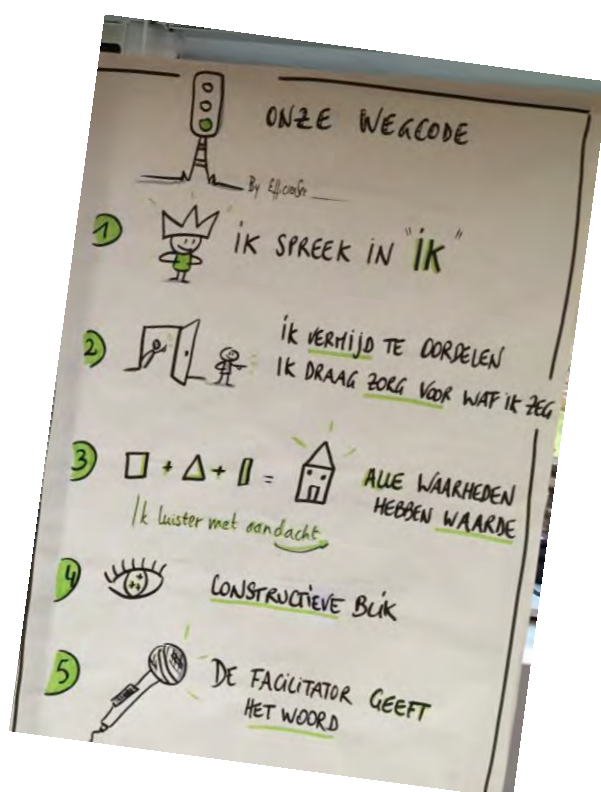 ONZE WEGCODE
By Efficiënte
1
iK SPREEK iN "iK"
2
iK VERMIJD TE OORDELEN
IK DRAAG ZORG VOOR WAT IK ZEG
3
+ + =
ALLE WAARHEDEN
HEBBEN WAARDE
Ik luister met aandacht
4
CONSTRUCTIEVE BLIK
5
DE FACILITATOR GEEFT
HET WOORD